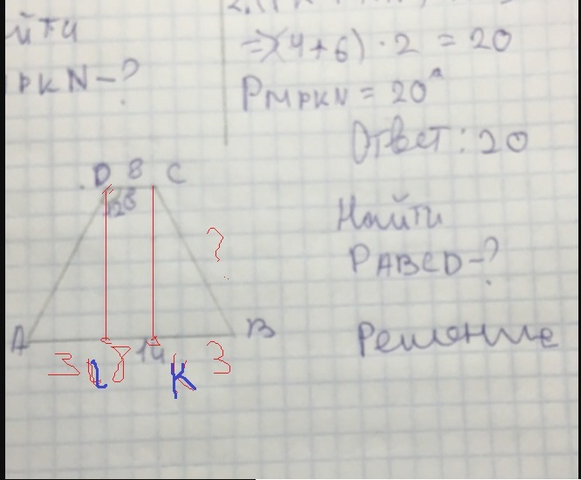 йти
PKN-?
=>(4+6) · 2 = 20
PMPKN = 20
Ответ: 20
D 8 C
?
A B
3 8 14 3
L K
Найти
PABCD-?
Решение